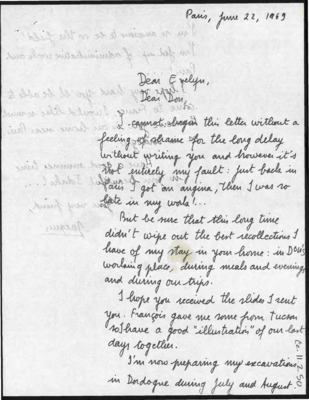 Paris, June 22, 1969
Dear Evelyn,
Dear Don,
I cannot begin this letter without a
feeling of shame for the long delay
without writing you and however it's
not entirely my fault: Just back in
Paris I got an angina, then I was so
late in my work!...
But be sure that this long time
didn't wipe out the best recollections I
have of my stay in your home: in Don's
working place, during meals and evenings
and during our trips.
I hope you received the slides I sent
you. François gave me some from Tucson
so I have a good "illustration" of our last
days together.
I'm now preparing my excavations
in Dordogne during July and August.